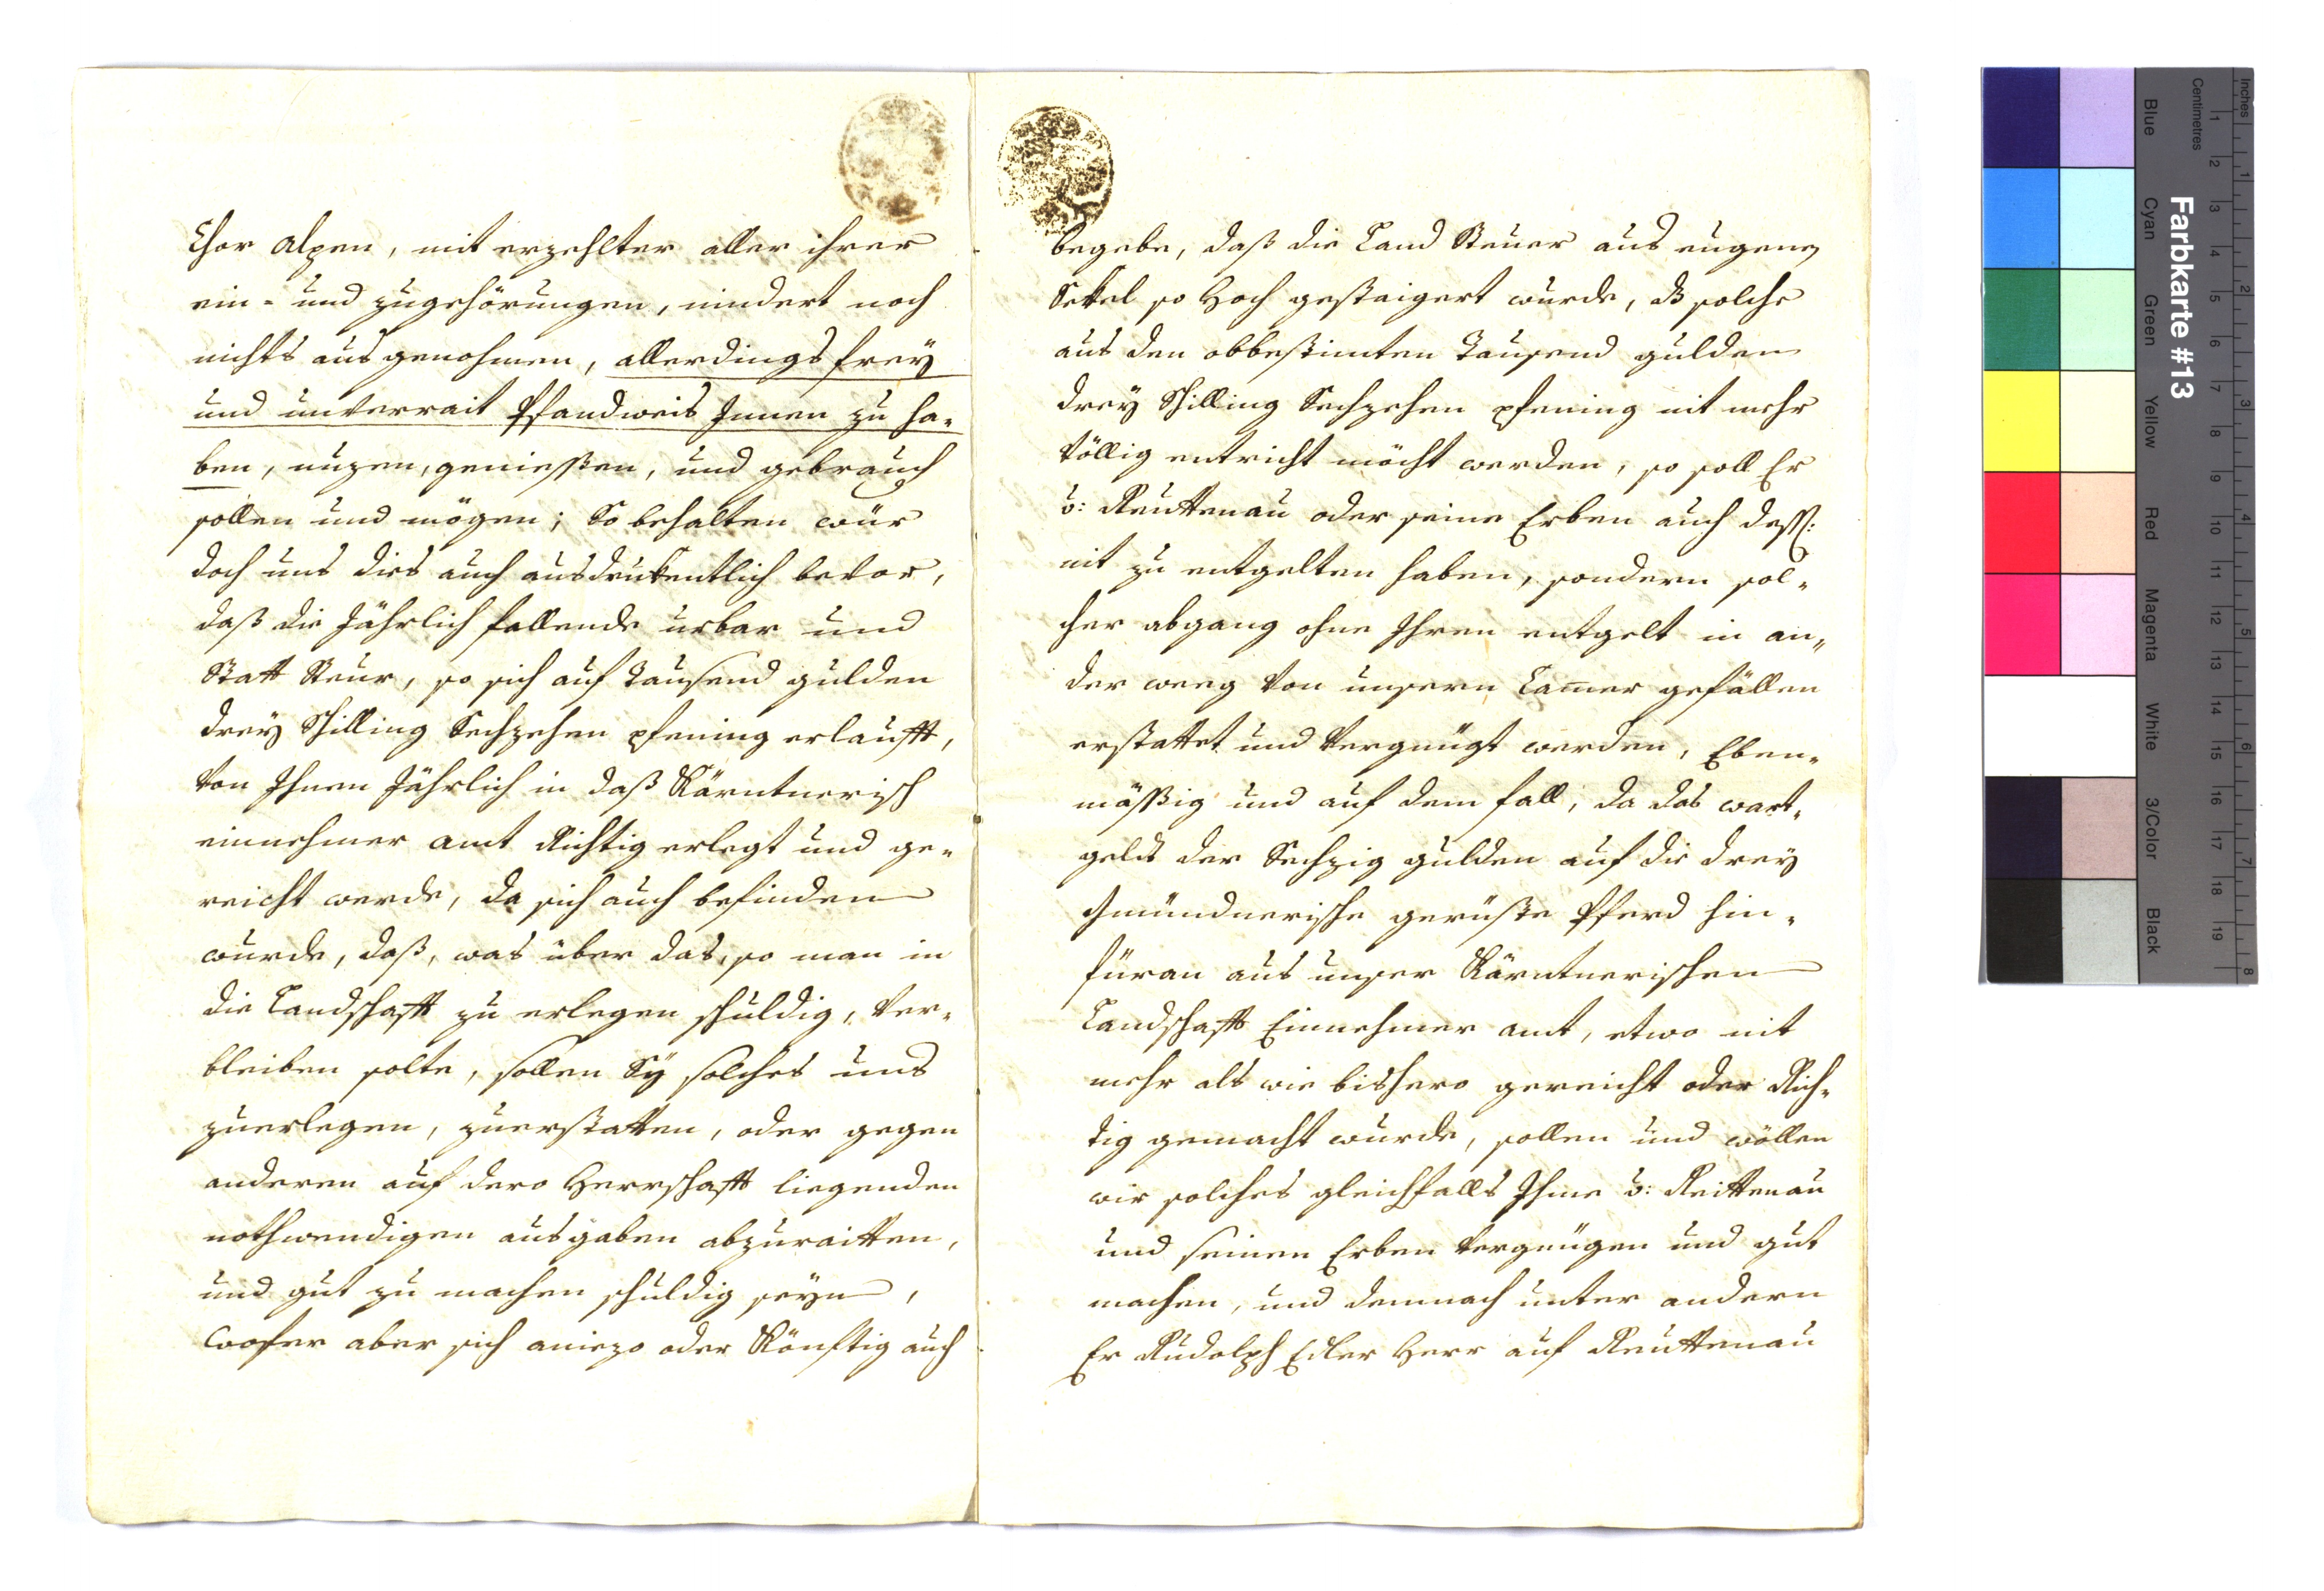 Chor Alpen, mit erzehlter aller ihrer
ein- und zugehörungen, nindert noch
nichts ausgenohmen, allerdings frey
und unverrait Pfandweis Innen zu ha-
ben, nuzen, genießen, und gebrauch
sollen und mögen; So behalten wür
doch uns dies auch ausdrukentlich bevor,
daß die Jährlich fallende urbar und
Statt Steur, so sich auf Tausend gulden
drey Schilling Sechzehen pfening erlaufft,
Von Ihnen Jährlich in daß Kärntnerisch
einnehmer amt Richtig erlegt und ge-
reicht werde, da sich auch befinden
wurde, daß, was über das, so man in
die Landschafft zu erlegen schuldig, Ver-
bleiben solte, sollen Sy solches uns
zuerlegen, zuerstatten, oder gegen
anderen auf dero Herrschafft liegenden
nothwendigen ausgaben abzuraitten,
und gut zu machen schuldig seyn,
wofer aber sich aniezo oder Könftig auch
begebe, daß die Land Steuer aus eugene
Sekel so Hoch gestaigert wurde, dß solche
aus den obbestimten Tausend gulden
drey Schilling Sechzehen pfening nit mehr
Völlig entricht möcht werden, so soll Er
v: Reuttenau oder seine Erben auch dess:
nit zu entgelten haben, sondern sol-
cher abgang ohne Ihren entgelt in an-
der weeg Von unsern Camer gefällen
erstattet und Vergnügt werden, Eben-
mäßig und auf dem fall, da das wart-
geldt der Sechzig gulden auf die drey
Gmündnerische gerüste Pferd hin-
füran aus unser Kärntnerischen
Landschafft Einnehmer amt, etwo nit
mehr als wie bishero gereicht oder Rich-
tig gemacht wurde, sollen und wöllen
wir solches gleichfalls Ihme v: Reittenau
und seinen Erben Vergnügen und gut
machen, und demnach unter andern
Er Rudolph Edler Herr auf Reuttenau
Farbkarte #13
Inches
Centimetres
1 2 3 4 5 6 7 8
1 2 3 4 5 6 7 8 9 10 11 12 13 14 15 16 17 18 19
Blue
Cyan
Green
Yellow
Red
Magenta
White
3/Color
Black